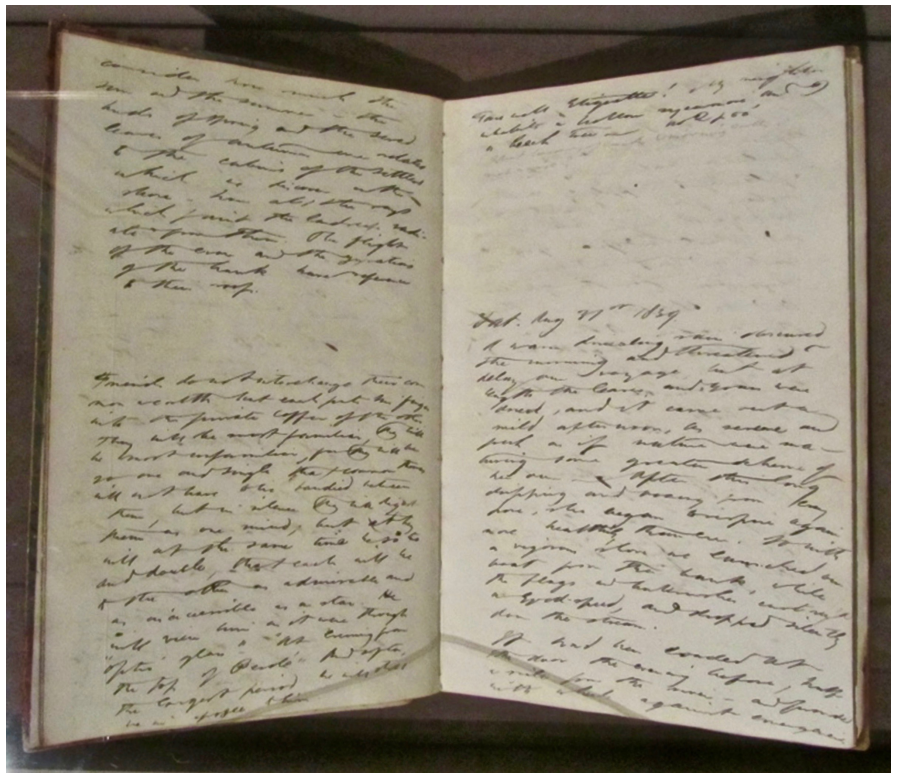 consider how much the
sun and the summer – the
buds of spring and the sered
leaves of autumn are related
to the cabins of the settlers
which we discover on the
shore. How all the rays
which paint the landscape radi-
ate from them. The flight
of the crow and the gyrations
of the hawk have reference
to their roof.
Friends do not interchange their com
mon wealth but each puts his finger
into the private coffer of the other.
They will be most familiar, they will
be most unfamiliar, for they will be
so one and single that common themes
will not have to be bandied between
them, but in silence they will digest
them as one mind; but they
will at the same time be so two
and double, that each will be
to the other as admirable and
as inaccessible as a star. He
will view him as it were through
"optic glass" "At evening from
the top of Fesolé" And after
the longest period he will still
be in apogee to him
Farewell Etiquette! My neighbor
inhabits a hollow sycamore, and I
a beech tree
Sat. Aug 31st 1839
A warm drizzling rain obscured
the morning and threatened to
delay our voyage, but at
length the leaves and grass were
dried, and it came out a
mild afternoon, as serene and
fresh as if nature were ma-
turing some greater scheme of
her own – After this long
dripping and oozing from every
pore, she began to respire again
more healthily than ever. So with
a vigorous shove we launched our
boat from the bank, while
the flags and bulrushes curtseyed
a God-speed, and dropped silently
down the stream.
It had been loaded at
the door the evening before, half
a mile from the river, and provided
with wheels against emergencies